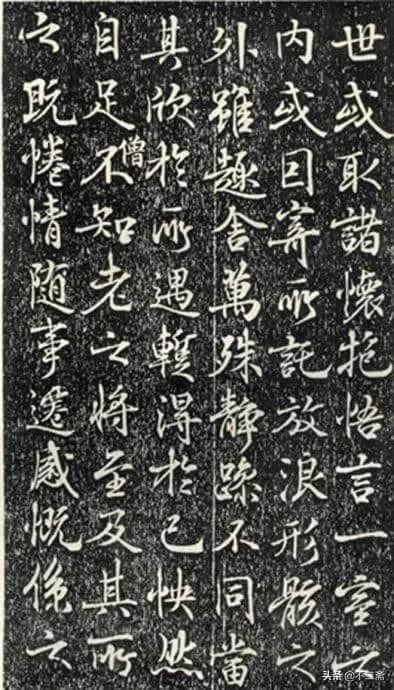 世或取諸懷抱悟言一室之
内或因寄所託放浪形骸之
外雖趣舍萬殊静躁不同當
其欣於所遇蹔得於己怏然
自足不知老之將至及其所
僧
之既惓情随事遷感慨係之
头条@不二斋